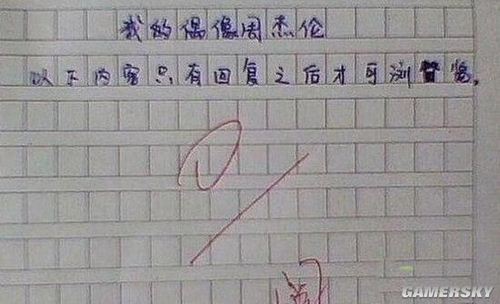 我的偶像周杰伦
以下内容只有回复之后才可浏览。
阅
GAMERSKY